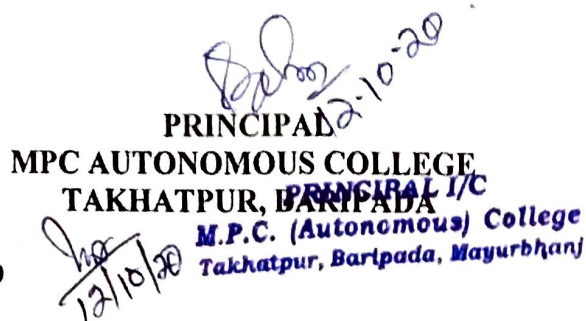 12-10-20
PRINCIPAL
MPC AUTONOMOUS COLLEGE
TAKHATPUR, BARIPADA
PRINCIPAL I/C
M.P.C. (Autonomous) College
Takhatpur, Baripada, Mayurbhanj
12/10/20